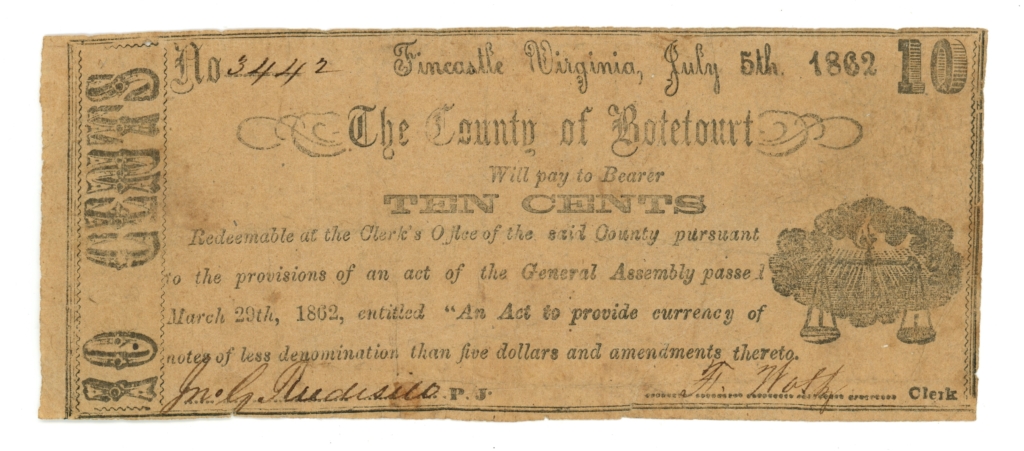 10 CENTS
No 3442 Fincastle Virginia, July 5th. 1862 10
The County of Botetourt
Will pay to Bearer
TEN CENTS
Redeemable at the Clerk's Office of the said County pursuant
to the provisions of an act of the General Assembly passed
March 29th, 1862, entitled "An Act to provide currency of
notes of less denomination than five dollars and amendments thereto.
Jno. G. P. J.
F. Clerk